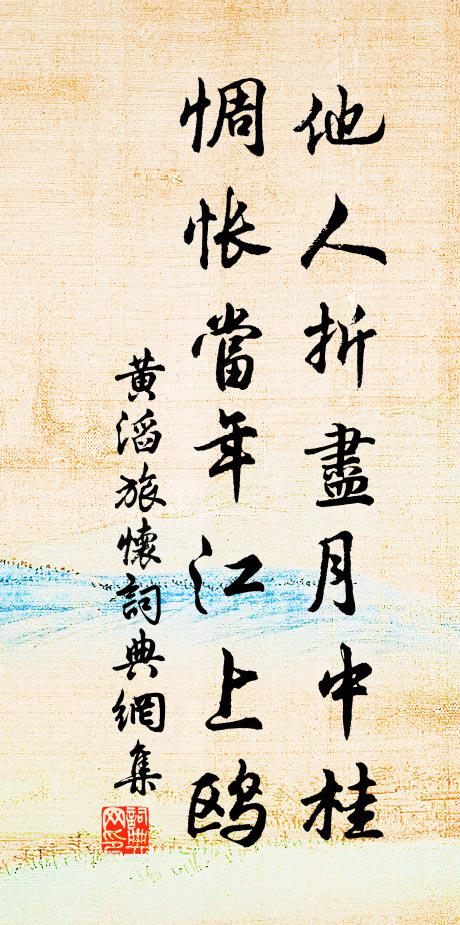 他人折盡月中桂
惆悵當年江上鸥
黃滔旅懷詞典網集
詞典网印